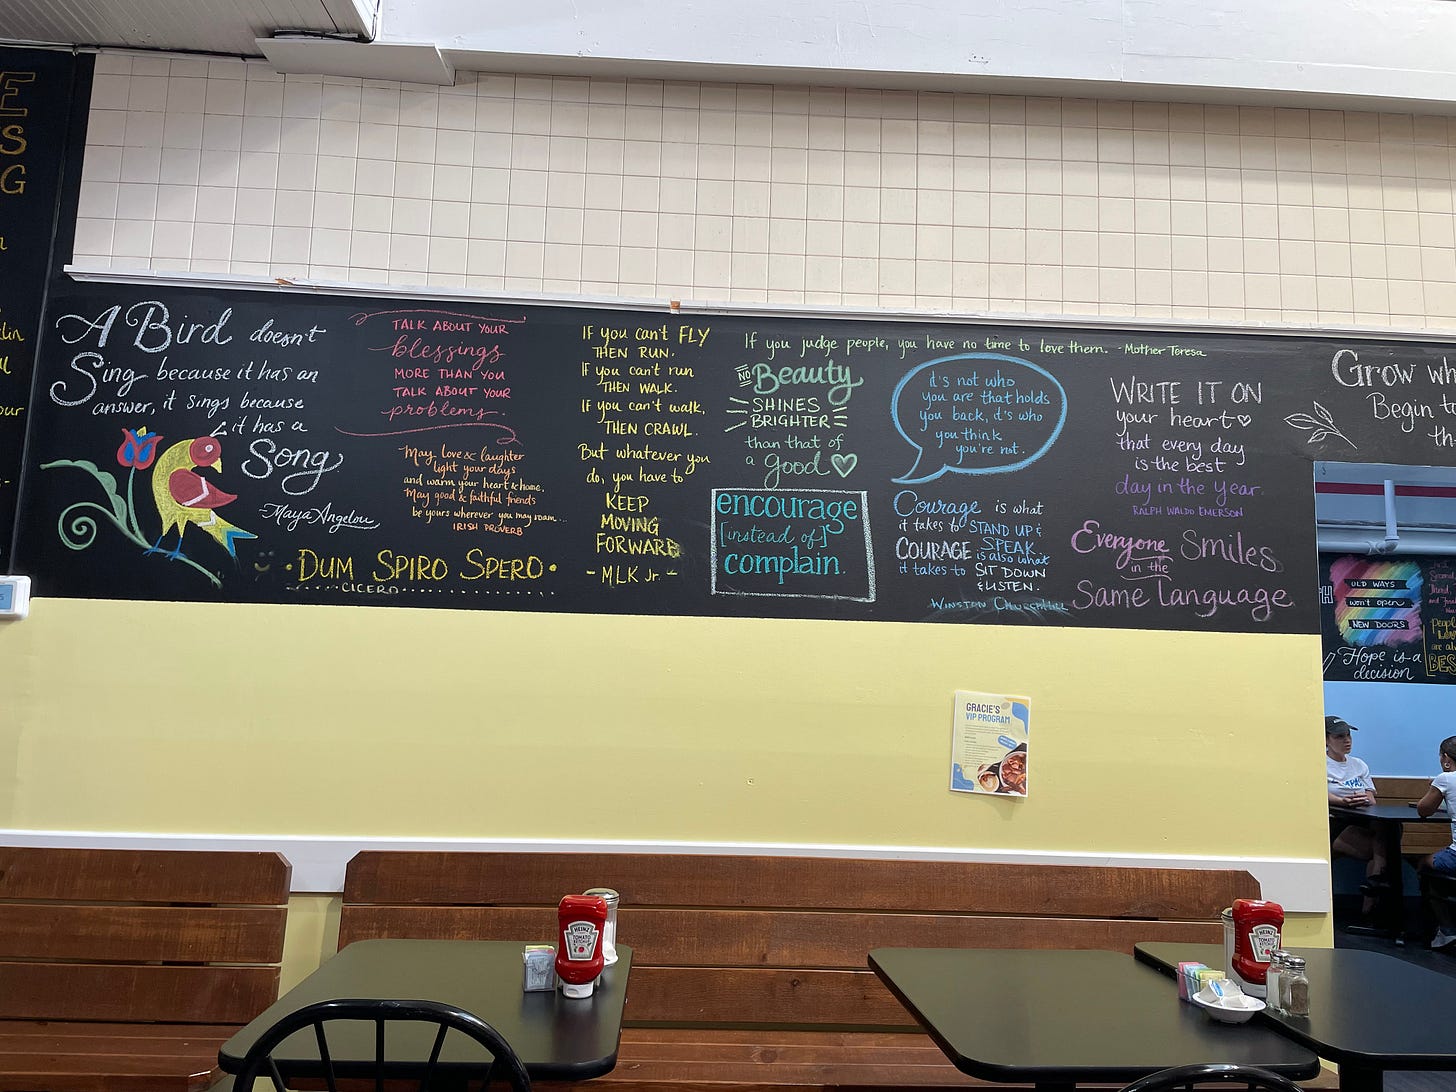 E
S
G
A Bird doesn't
Sing because it has an
answer, it sings because
it has a
Song
-Maya Angelou
TALK ABOUT YOUR
blessings
MORE THAN YOU
TALK ABOUT YOUR
problems.
May love & laughter
light your days
and warm your heart & home.
May good & faithful friends
be yours wherever you may roam...
IRISH PROVERB
• DUM SPIRO SPERO •
CICERO
If you can't FLY
THEN RUN.
If you can't run
THEN WALK.
If you can't walk,
THEN CRAWL.
But whatever you
do, you have to
KEEP
MOVING
FORWARD
- MLK Jr. -
If you judge people, you have no time to love them. -Mother Teresa
NO Beauty
SHINES
BRIGHTER
than that of
a good
encourage
[instead of]
complain.
it's not who
you are that holds
you back, it's who
you think
you're not.
Courage is what
it takes to STAND UP &
SPEAK.
COURAGE is also what
it takes to SIT DOWN
& LISTEN.
WINSTON CHURCHILL
WRITE IT ON
your heart
that every day
is the best
day in the year.
RALPH WALDO EMERSON
Everyone Smiles
in the
Same language
Grow wh
Begin t
th
OLD WAYS
won't open
NEW DOORS
Hope is a
decision
GRACIE'S
VIP PROGRAM
HEINZ
TOMATO
KETCHUP
HEINZ
TOMATO
KETCHUP